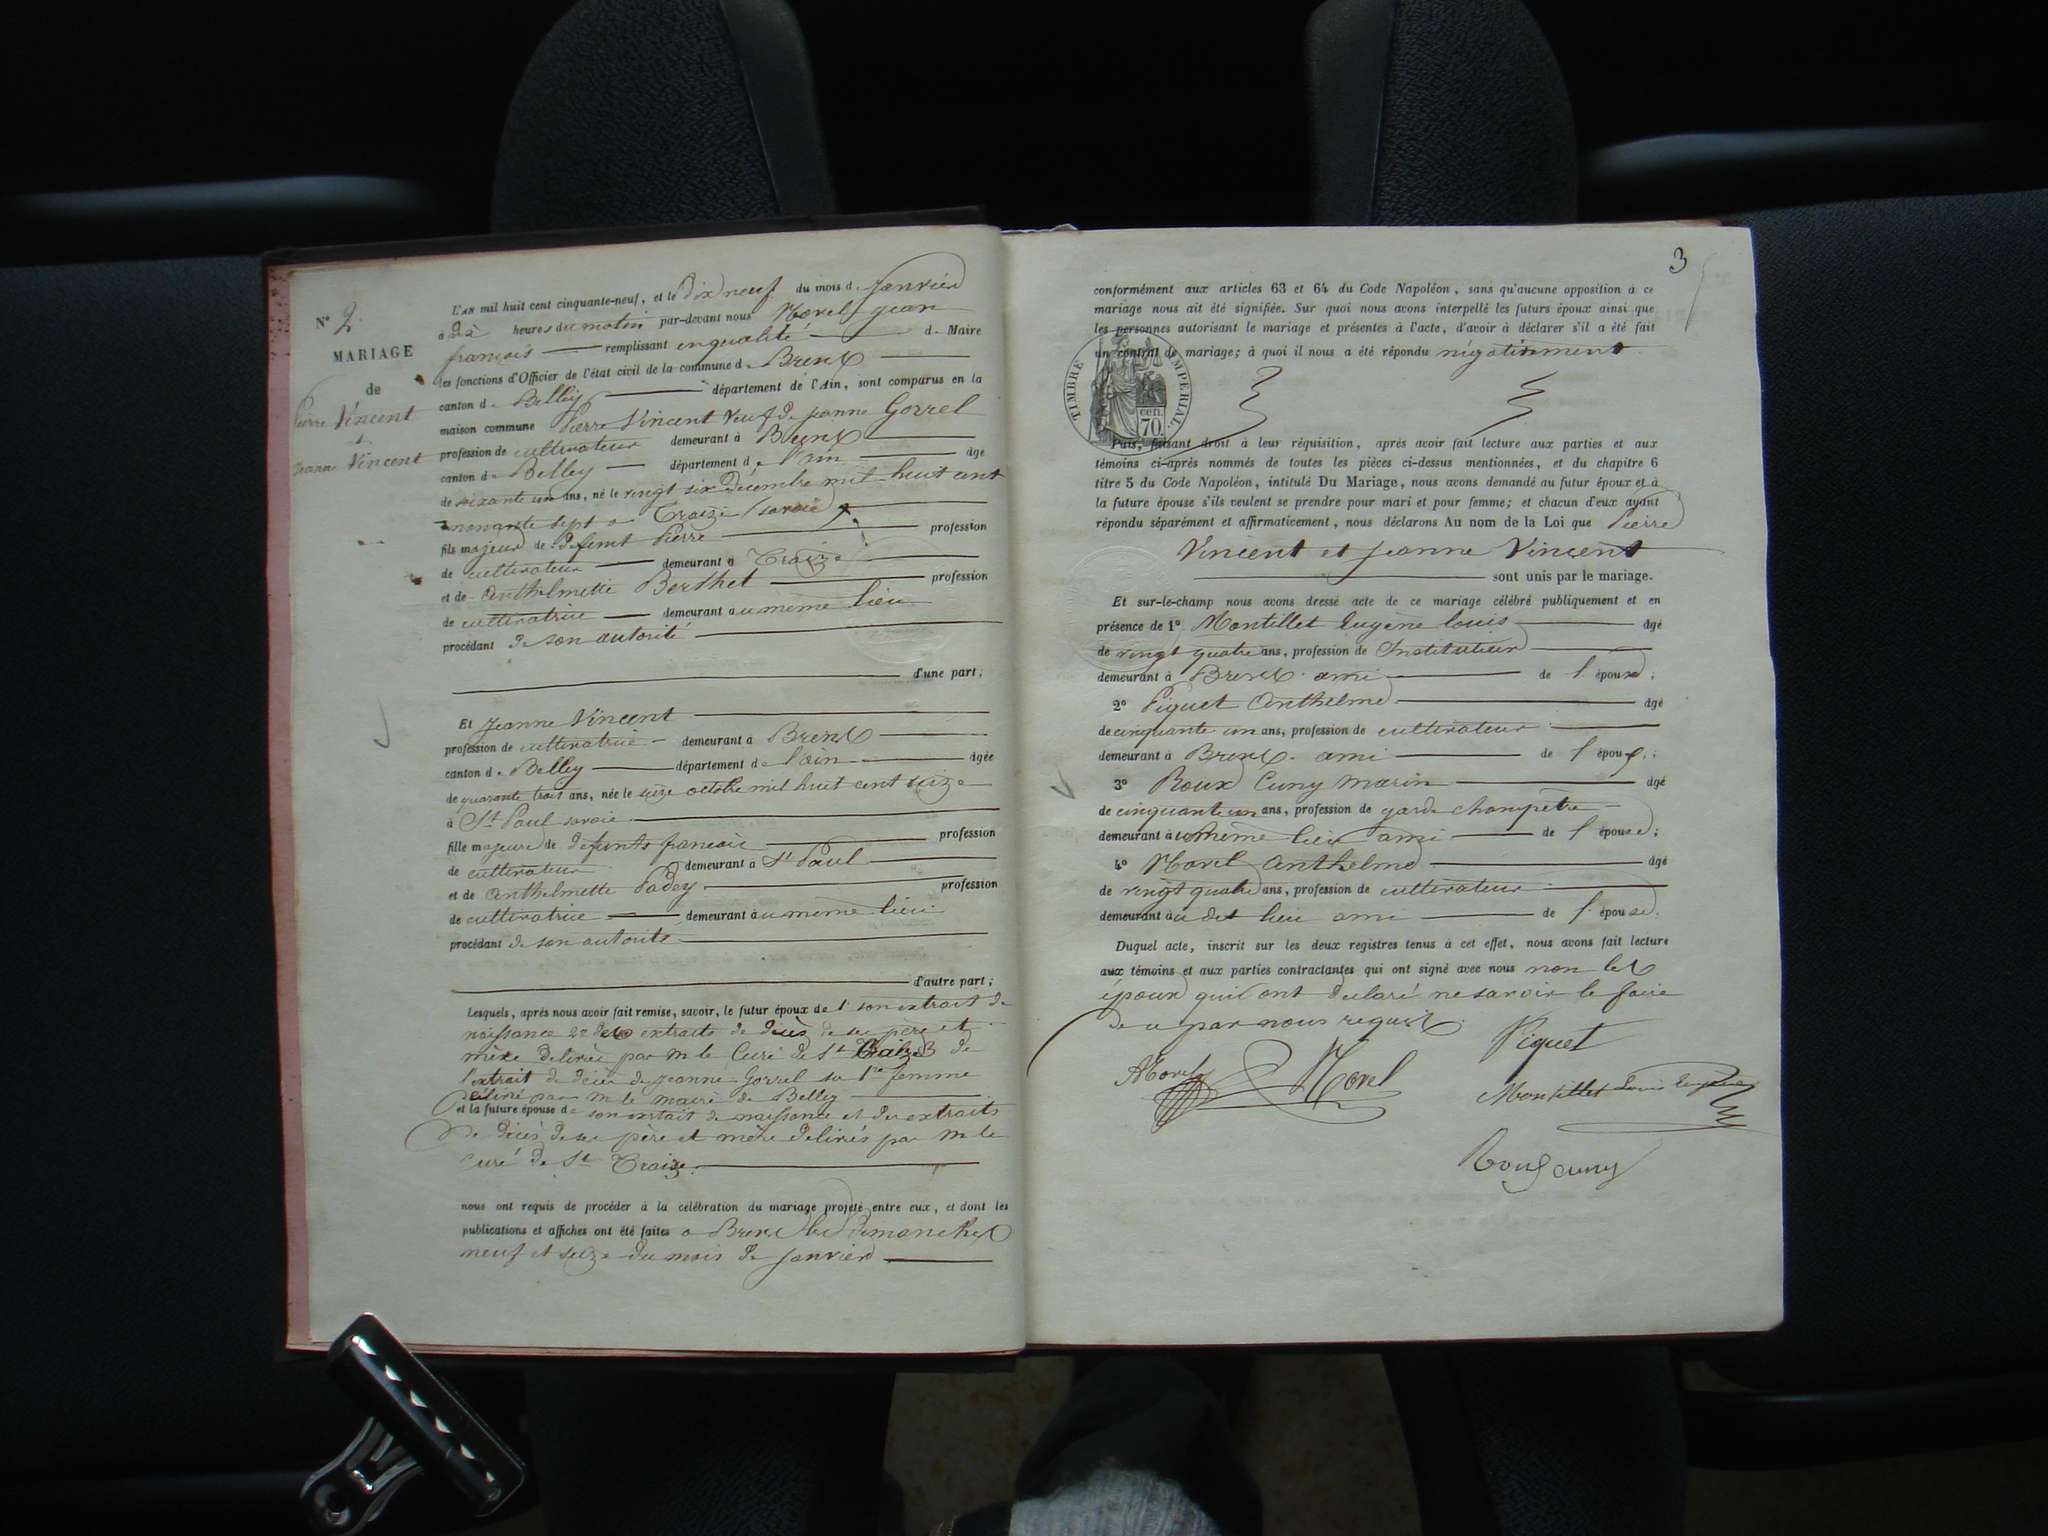 N° 2.
MARIAGE
de
Pierre Vincent
&
Jeanne Vincent
L'AN mil huit cent cinquante-neuf, et le Dix neuf du mois de Janvier
à dix heures du matin par-devant nous Morel jean
françois remplissant en qualité de Maire
les fonctions d'Officier de l'état civil de la commune de Brens
canton de Belley département de l'Ain, sont comparus en la
maison commune Pierre Vincent veuf de jeanne Gorrel
profession de cultivateur demeurant à Brens
canton de Belley département de l'ain âgé
de soixante un ans, né le vingt six décembre mil huit cent
nonante sept a Traize (savoie)
fils majeur de defunt Pierre profession
de cultivateur demeurant a Traize
et de Anthelmette Berthet profession
de cultivatrice demeurant au même lieu
procédant de son autorité
d'une part;
Et Jeanne Vincent
profession de cultivatrice demeurant à Brens
canton de Belley département de l'ain âgée
de quarante trois ans, née le seize octobre mil huit cent seize
à St Paul savoie
fille majeure de defunts francois profession
de cultivateur demeurant à St Paul
et de Anthelmette Padey profession
de cultivatrice demeurant au même lieu
procédant de son autorité
d'autre part;
Lesquels, après nous avoir fait remise, savoir, le futur époux de 1° son extrait de
naissance 2° des extraits de décès de ses père et
mère delivrés par m le Curé de St Traize 3 de
l'extrait de décès de jeanne Gorrel sa 1re femme
délivré par m le maire de Belley
et la future épouse de son extrait de naissance et des extraits
de décès de ses père et mère délivrés par m le
curé de St Traize.
nous ont requis de procéder à la célébration du mariage projeté entre eux, et dont les
publications et affiches ont été faites a Brens les dimanches
neuf et seize du mois de janvier
3
conformément aux articles 63 et 64 du Code Napoléon, sans qu'aucune opposition à ce
mariage nous ait été signifiée. Sur quoi nous avons interpellé les futurs époux ainsi que
les personnes autorisant le mariage et présentes à l'acte, d'avoir à déclarer s'il a été fait
un contrat de mariage; à quoi il nous a été répondu négativement
TIMBRE IMPERIAL
70 cen.
Puis, faisant droit à leur réquisition, après avoir fait lecture aux parties et aux
témoins ci-après nommés de toutes les pièces ci-dessus mentionnées, et du chapitre 6
titre 5 du Code Napoléon, intitulé Du Mariage, nous avons demandé au futur époux et à
la future épouse s'ils veulent se prendre pour mari et pour femme; et chacun d'eux ayant
répondu séparément et affirmativement, nous déclarons Au nom de la Loi que Pierre
Vincent et jeanne Vincent
sont unis par le mariage.
Et sur-le-champ nous avons dressé acte de ce mariage célébré publiquement et en
présence de 1° Montillet Eugène louis âgé
de vingt quatre ans, profession de Instituteur
demeurant à Brens ami de l'épouse;
2° Piquet Anthelme âgé
de cinquante un ans, profession de cultivateur
demeurant à Brens ami de l'époux;
3° Roux Cuny marin âgé
de cinquante un ans, profession de garde champetre
demeurant au même lieu ami de l'épouse;
4° Morel Anthelme âgé
de vingt quatre ans, profession de cultivateur
demeurant au dit lieu ami de l'épouse.
Duquel acte, inscrit sur les deux registres tenus à cet effet, nous avons fait lecture
aux témoins et aux parties contractantes qui ont signé avec nous non les
époux qui ont declaré ne savoir le faire
de ce par nous requis.
Piquet
AMorel Morel
Montillet Louis Eugène
Roux Cuny